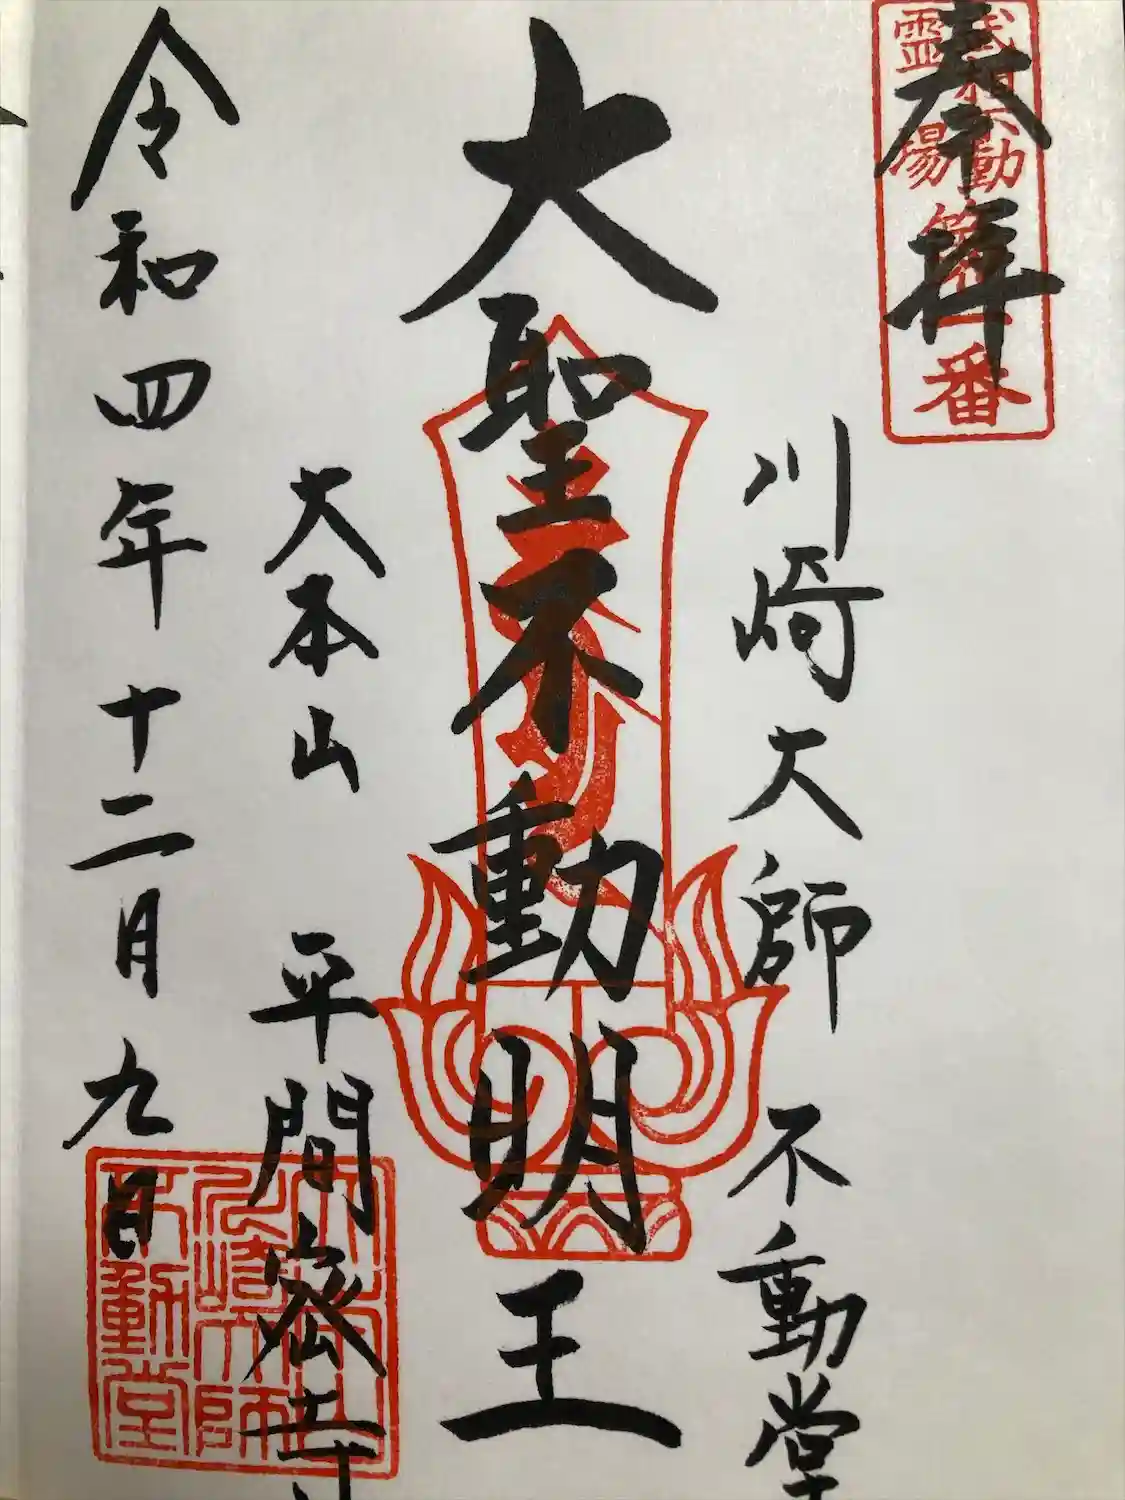 奉拝
武相不動
霊場
第一番
川崎大師 不動堂
大聖不動明王
大本山 平間密寺
令和四年十二月九日
川崎大師
不動堂